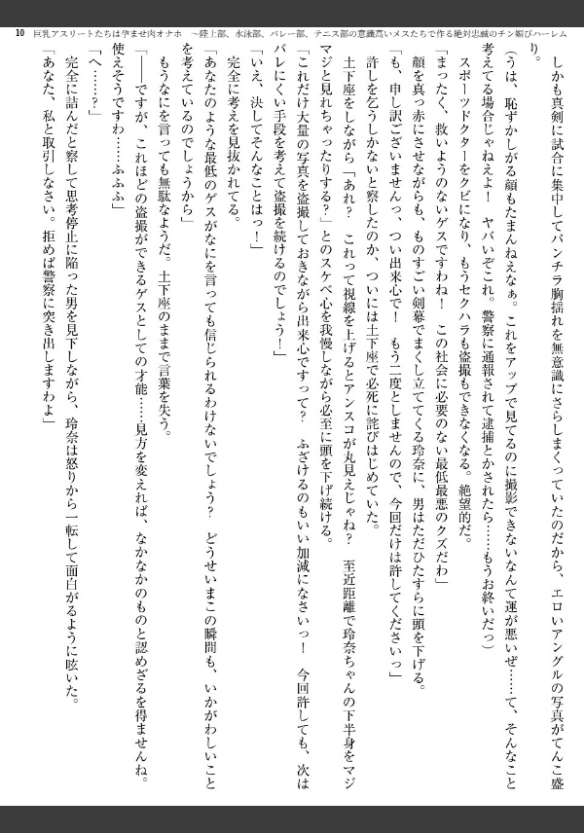 10 巨乳アスリートたちは孕ませ肉オナホ　～陸上部、水泳部、バレー部、テニス部の意識高いメスたちで作る絶対忠誠のチン媚びハーレム
しかも真剣に試合に集中してパンチラ胸揺れを無意識にさらしまくっていたのだから、エロいアングルの写真がてんこ盛
り。
（うは、恥ずかしがる顔もたまんねえなぁ。これをアップで見てるのに撮影できないなんて運が悪いぜ……て、そんなこと
考えてる場合じゃねえよ！　ヤバいぞこれ。警察に通報されて逮捕とかされたら……もうお終いだっ）
スポーツドクターをクビになり、もうセクハラも盗撮もできなくなる。絶望的だ。
「まったく、救いようのないゲスですわね！　この社会に必要のない最低最悪のクズだわ」
顔を真っ赤にさせながらも、ものすごい剣幕でまくし立ててくる玲奈に、男はただひたすらに頭を下げる。
「も、申し訳ございませんっ、つい出来心で！　もう二度としませんので、今回だけは許してくださいっ」
許しを乞うしかないと察したのか、ついには土下座で必死に詫びはじめていた。
土下座をしながら「あれ？　これって視線を上げるとアンスコが丸見えじゃね？　至近距離で玲奈ちゃんの下半身をマジ
マジと見れちゃったりする？」とのスケベ心を我慢しながら必至に頭を下げ続ける。
「これだけ大量の写真を盗撮しておきながら出来心ですって？　ふざけるのもいい加減になさいっ！　今回許しても、次は
バレにくい手段を考えて盗撮を続けるのでしょう！」
「いえ、決してそんなことはっ！」
完全に考えを見抜かれてる。
「あなたのような最低のゲスがなにを言っても信じられるわけないでしょう？　どうせいまこの瞬間も、いかがわしいこと
を考えているのでしょうから」
もうなにを言っても無駄なようだ。土下座のままで言葉を失う。
「――ですが、これほどの盗撮ができるゲスとしての才能……見方を変えれば、なかなかのものと認めざるを得ませんね。
使えそうですわ……ふふふ」
「へ……？」
完全に詰んだと察して思考停止に陥った男を見下しながら、玲奈は怒りから一転して面白がるように呟いた。
「あなた、私と取引しなさい。拒めば警察に突き出しますわよ」